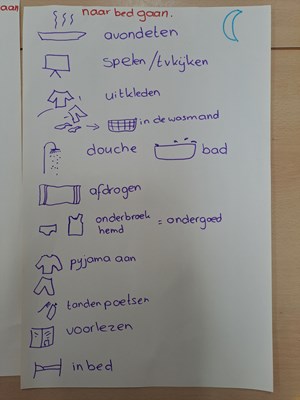 aan
naar bed gaan.
avondeten
spelen/tvkijken
uitkleden
in de wasmand
douche bad
afdrogen
onderbroek
hemd = ondergoed
pyjama aan
tanden poetsen
voorlezen
in bed